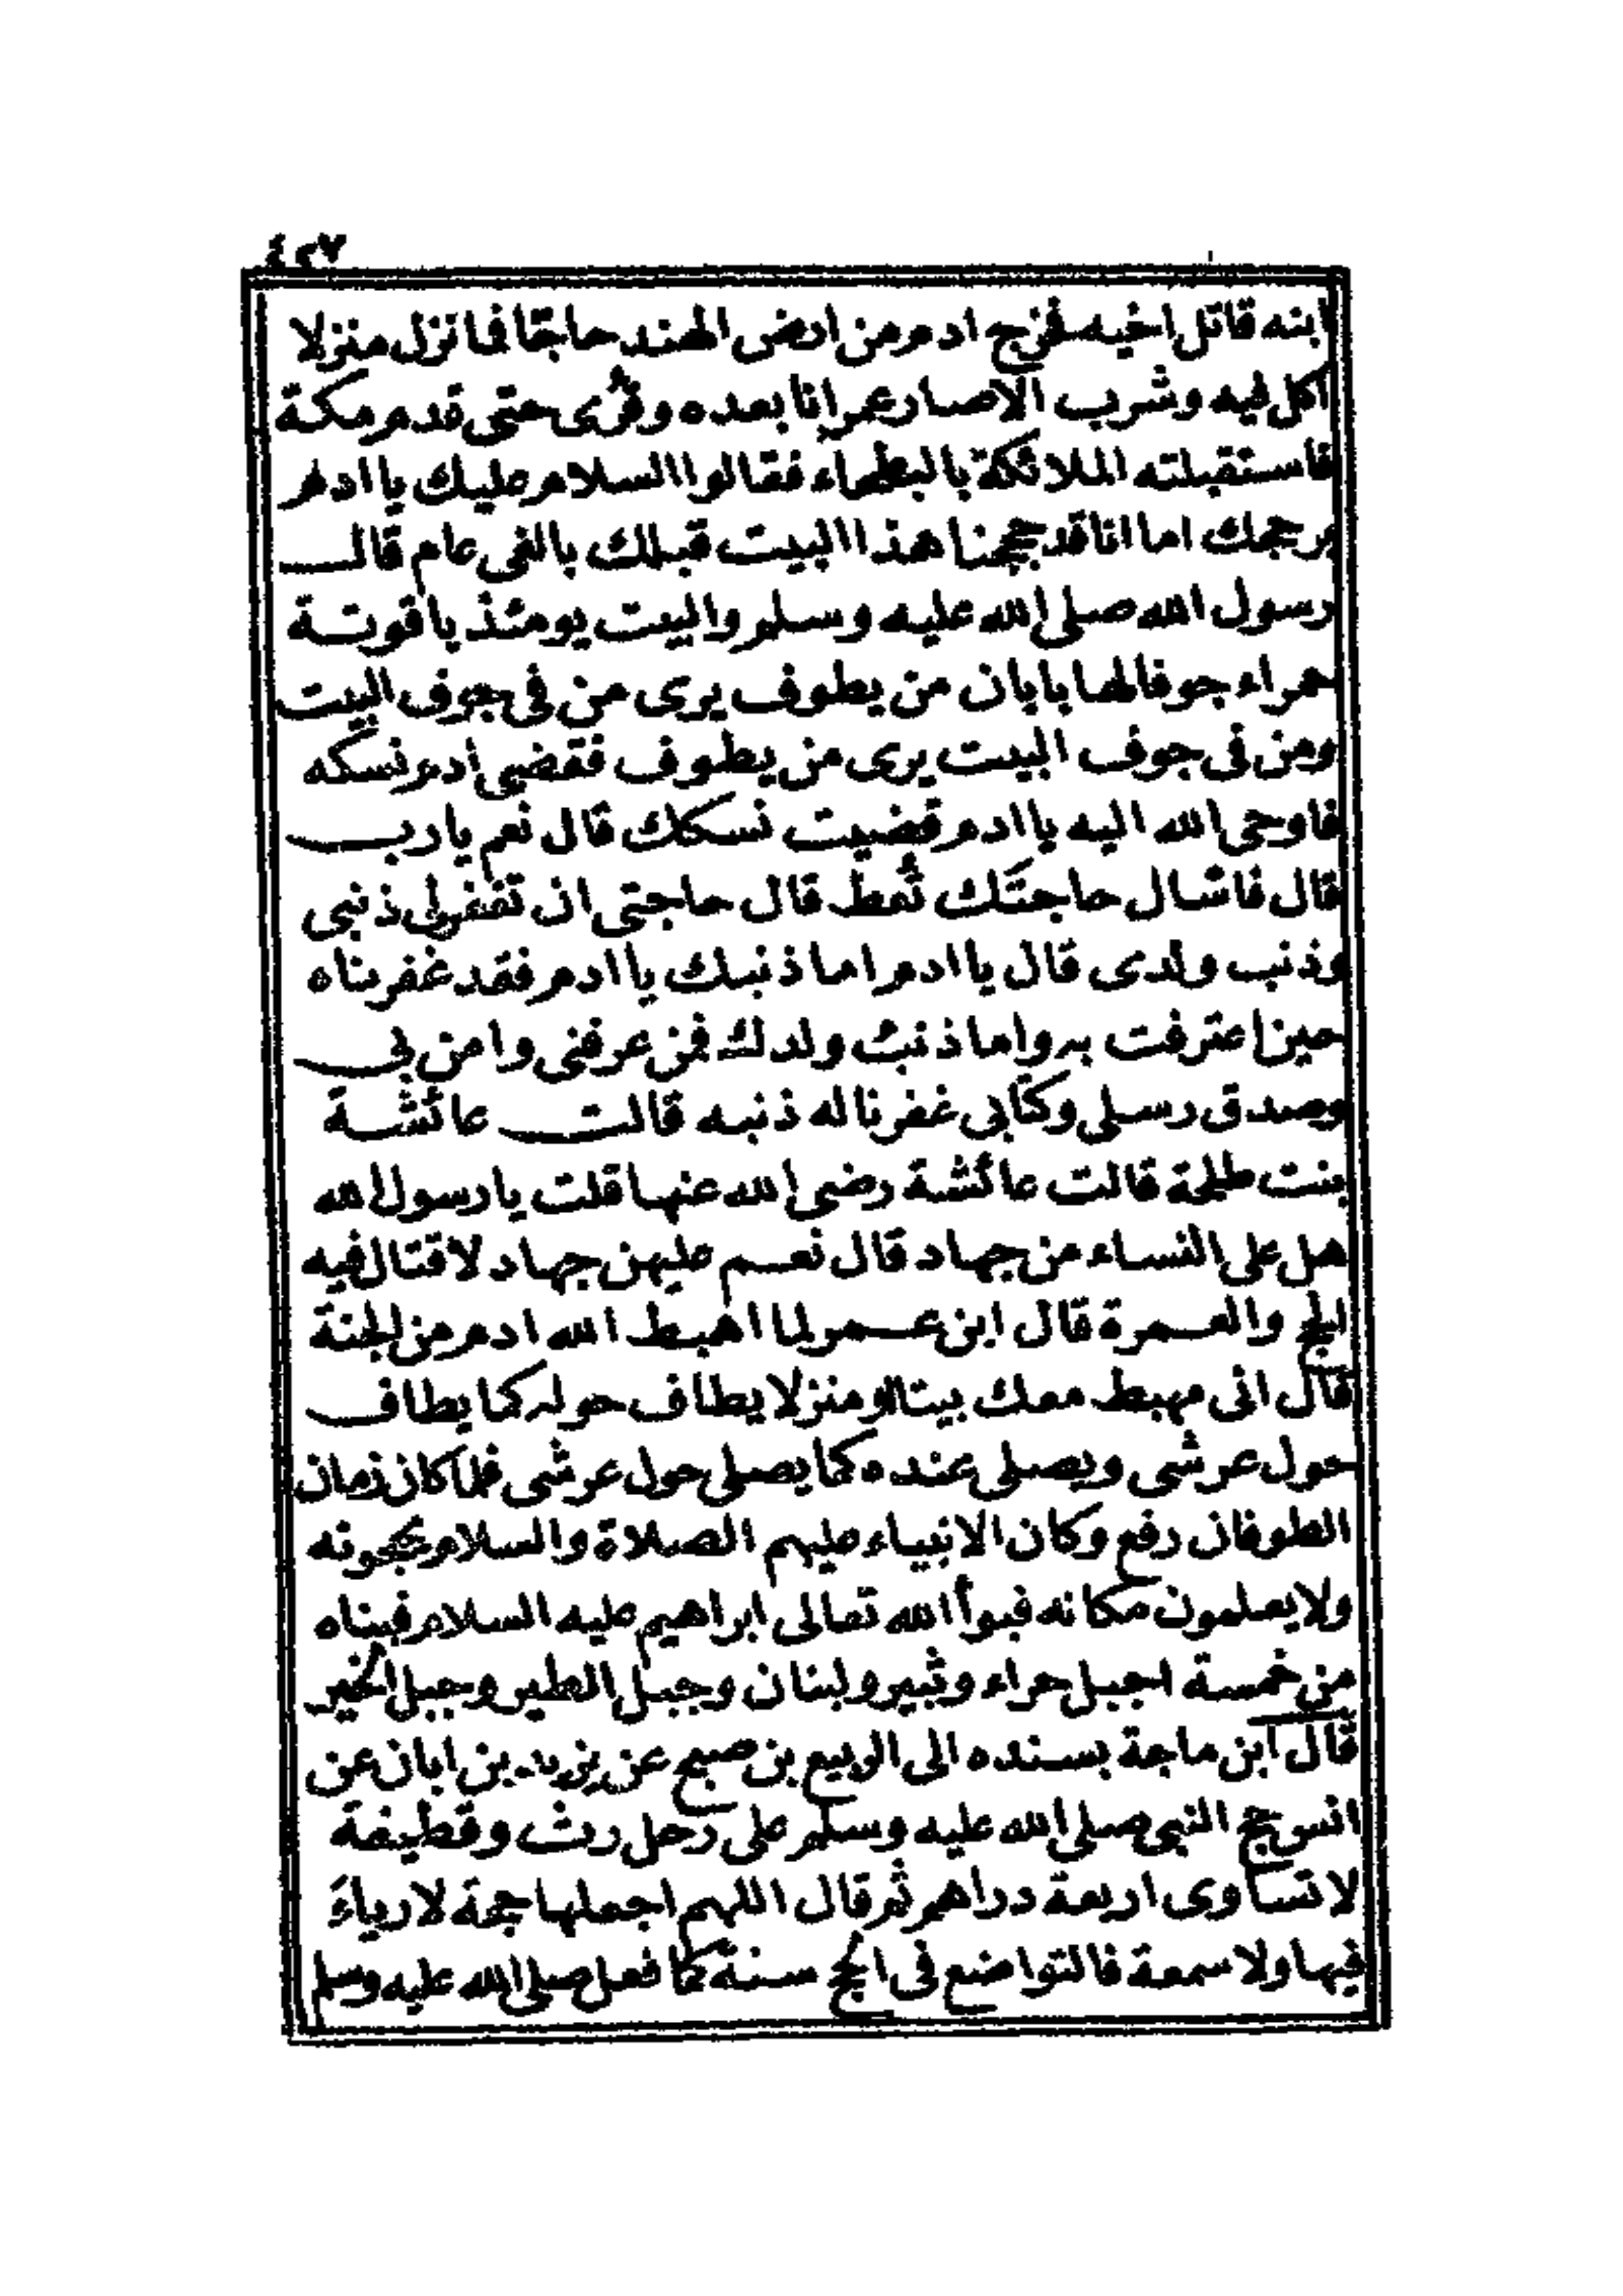 ٤٢٧
ابنه قاتل اخيه فخرج ادم من ارض الهند حاجا فما نزل منزلا
اكل فيه وشرب الا صار عمرانا بعده وقرى حتى قدم مكة
فاستقبلته الملائكة بالبطحاء فقالوا السلام عليك يا ادم
بر حجك اما انا قد حججنا هذا البيت قبلك بالفى عام قال
رسول الله صلى الله عليه وسلم والبيت يومئذ ياقوتة
حمراء جوفا لها بابان من يطوف يرى من فى جوف البيت
ومن فى جوف البيت يرى من يطوف فقضى ادم نسكه
فاوحى الله اليه يا ادم قضيت نسكك قال نعم يارب
قال فاسال حاجتك تعط قال حاجتى ان تغفرلى ذنبى
وذنب ولدى قال يا ادم اما ذنبك يا ادم فقد غفرناه
حين اعترفت به واما ذنب ولدك فمن عرفنى وامن بى
وصدق رسلى وكتابى غفرنا له ذنبه قالت عائشة
بنت طلحة قالت عائشة رضى الله عنها قلت يارسول الله
هل على النساء من جهاد قال نعم عليهن جهاد لا قتال فيه
الحج والعمرة قال ابن عمر لما اهبط الله ادم من الجنة
قال انى مهبط معك بيتا او منزلا يطاف حوله كما يطاف
حول عرشى ويصلى عنده كما يصلى حول عرشى فلما كان زمان
الطوفان رفع وكان الانبياء عليهم الصلاة والسلام يحجونه
ولا يعلمون مكانه فبوأ الله تعالى ابراهيم عليه السلام فبناه
من خمسة اجبل حراء وثبير ولبنان وجبل الطير وجبل الخير
قال ابن ماجة بسنده الى الربيع بن صبيح عن يزيد بن ابان عن
انس حج النبى صلى الله عليه وسلم على رحل رث وقطيفة
لا تساوى اربعة دراهم ثم قال اللهم اجعلها حجة لا رياء
فيها ولا سمعة فالتواضع فى الحج سنة كما فعل صلى الله عليه وسلم